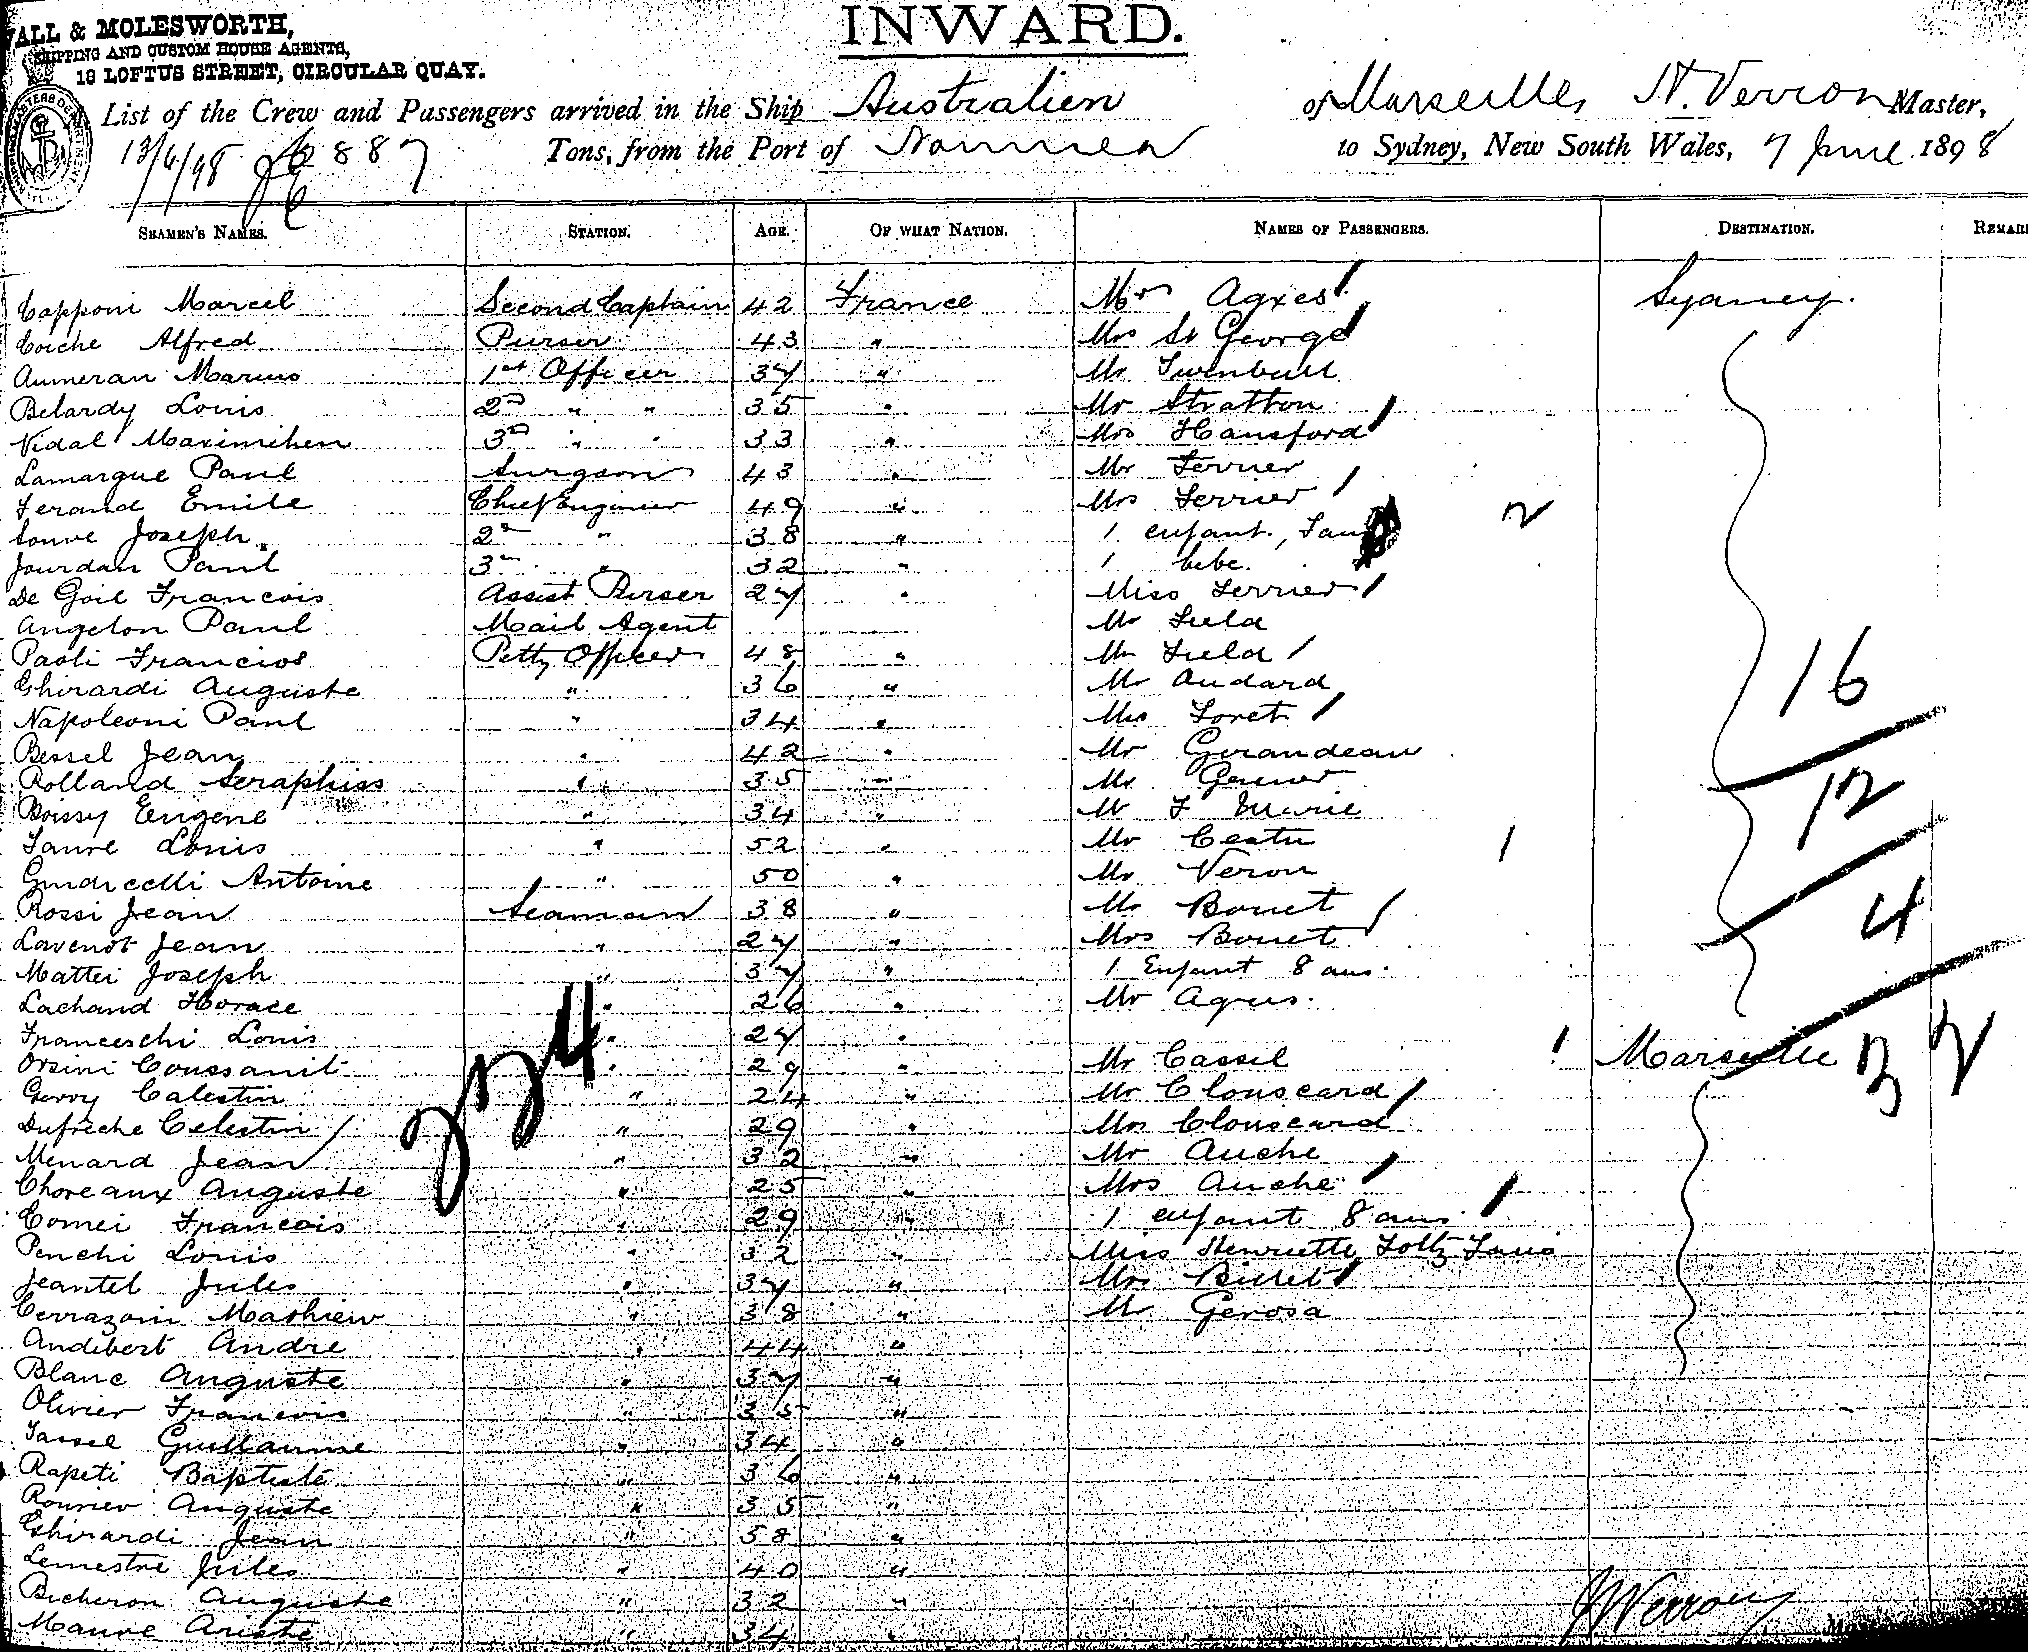 ALL & MOLESWORTH,
SHIPPING AND CUSTOM HOUSE AGENTS,
18 LOFTUS STREET, CIRCULAR QUAY.
INWARD.
List of the Crew and Passengers arrived in the Ship Australien of Marseille, N. Verron Master,
13/6/98 2887 Tons, from the Port of Noumea to Sydney, New South Wales, 7 June 1898
SEAMEN'S NAMES. STATION. AGE. OF WHAT NATION. NAMES OF PASSENGERS. DESTINATION. REMAR
Capponi Marcel Second Captain 42 France Mrs Agxes Sydney.
Coiche Alfred Purser 43 " Mrs St George
Aumeran Marius 1st Officer 37 " Mr Turnbull
Belardy Louis 2nd " " 35 " Mr Stratton
Vidal Maximihen 3rd " " 33 " Mrs Hansford
Lamarque Paul Surgeon 43 " Mr Ferrier
Ferand Emile Chief Engineer 49 " Mrs Ferrier
Joseph 2nd " 38 " 1 enfant, 2
Jourdan Paul 3rd " 32 " 1 bebe.
De Goil Francois Assist Purser 27 " Miss Ferrier
Angelon Paul Mail Agent Mr Field
Paoli Francios Petty Officer 48 " Mr Field
Ghirardi Auguste " 36 " Mr Audard
Napoleoni Paul " 34 " Loret 16
Bessel Jean " 42 " Mr Girandeau
Rolland Seraphiss " 35 " Mr
Boissy Eugene " 34 " Mr F Marie 12
Faure Louis " 52 " Mr 1
Antoine " 50 " Mr Veron
Rossi Jean Seaman 38 " Mr Bouet 4
Lavenot Jean " 27 " Mrs Bouet
Mattei Joseph " 37 " 1 Enfant 8 ans.
Lachand Horace " 26 " Mr Agrus.
Franceschi Louis " 27 "
Orsini Coussanit " 29 " Mr Cassel 1 Marseille 32
Gorry Calestin " 24 " Mr Clouscard
Dufreche Celestin " 29 " Mrs Clouscard
224
Menard Jean " 32 " Mr Auche
Choreaux Auguste " 25 " Mrs Auche
Comei Francois " 29 " 1 enfant 8 ans. 1
Penchi Louis " 32 " Miss Henriette
Jeantel Jules " 37 " Mrs Billet
Cerrazoni Mathieu " 38 " Mr Gerosa
Andibert Andre " 44 "
Blanc Auguste " 37 "
Olivier Francois " 35 "
Tassel Guillaume " 34 "
Rapeti Baptiste " 36 "
Auguste " 35 "
Ghirardi Jean " 38 "
Lemestre Jules " 40 "
Bicheron Auguste " 32 "
Manre Ariste " 34 "
Verron